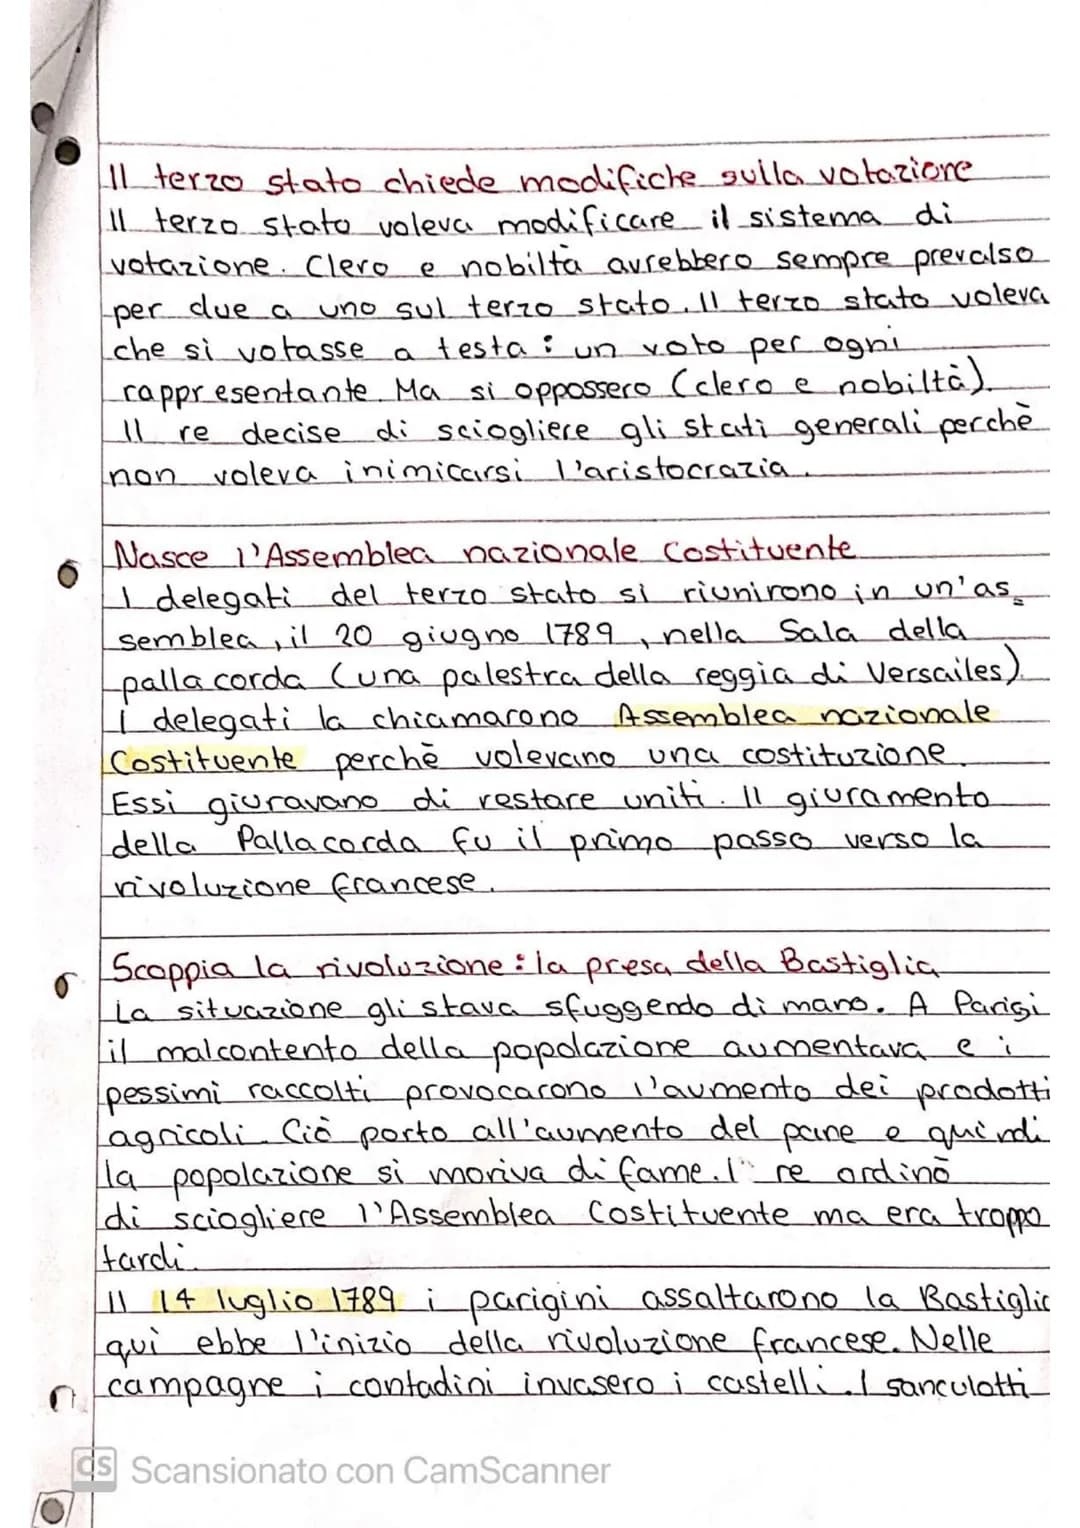 Il terzo stato chiede modifiche sulla votazione
Il terzo stato voleva modificare il sistema di
votazione. Clero e nobiltà avrebbero sempre prevalso
per due a uno sul terzo stato. Il terzo stato voleva
che si votasse a testa: un voto per ogni
rappresentante. Ma si oppossero (clero e nobiltà).
Il re decise di sciogliere gli stati generali perchè
non voleva inimicarsi l'aristocrazia.
Nasce l'Assemblea nazionale Costituente
I delegati del terzo stato si riunirono in un'as=
semblea, il 20 giugno 1789, nella Sala della
palla corda (una palestra della reggia di Versailes).
I delegati la chiamarono Assemblea nazionale
Costituente perchè volevano una costituzione.
Essi giuravano di restare uniti. Il giuramento
della Pallacorda fu il primo passo verso la
rivoluzione francese.
Scoppia la rivoluzione: la presa della Bastiglia
La situazione gli stava sfuggendo di mano. A Parigi
il malcontento della popolazione aumentava e i
pessimi raccolti provocarono l'aumento dei prodotti
agricoli. Ciò porto all'aumento del pane e quindi
la popolazione si moriva di fame. I re ordinò
di sciogliere l'Assemblea Costituente ma era troppo
tardi.
Il 14 luglio 1789 i parigini assaltarono la Bastiglia
qui ebbe l'inizio della rivoluzione francese. Nelle
campagne i contadini invasero i castelli. I sanculotti
CS Scansionato con CamScanner